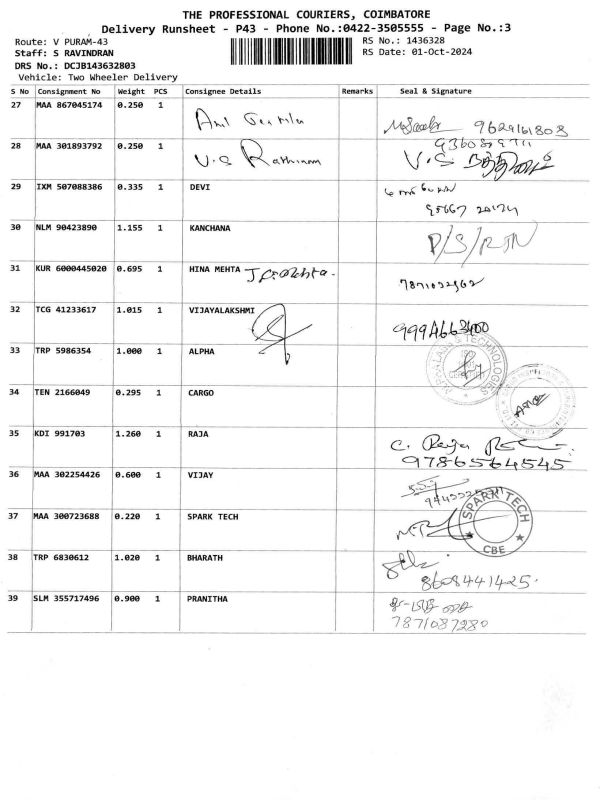 THE PROFESSIONAL COURIERS, COIMBATORE
Delivery Runsheet - P43 - Phone No.:0422-3505555 - Page No.:3
Route: V PURAM-43 RS No.: 1436328
Staff: S RAVINDRAN RS Date: 01-Oct-2024
DRS No.: DCJB143632803
Vehicle: Two Wheeler Delivery
S No Consignment No Weight PCS Consignee Details Remarks Seal & Signature
27 MAA 867045174 0.250 1 9629161803
28 MAA 301893792 0.250 1 V.S Rathinam V.S
29 IXM 507088386 0.335 1 DEVI
30 NLM 90423890 1.155 1 KANCHANA
31 KUR 6000445020 0.695 1 HINA MEHTA
32 TCG 41233617 1.015 1 VIJAYALAKSHMI
33 TRP 5986354 1.000 1 ALPHA
34 TEN 2166049 0.295 1 CARGO
35 KDI 991703 1.260 1 RAJA C. Raja
9786564545
36 MAA 302254426 0.600 1 VIJAY
37 MAA 300723688 0.220 1 SPARK TECH SPARK TECH CBE
38 TRP 6830612 1.020 1 BHARATH
8608441425
39 SLM 355717496 0.900 1 PRANITHA
7871087280